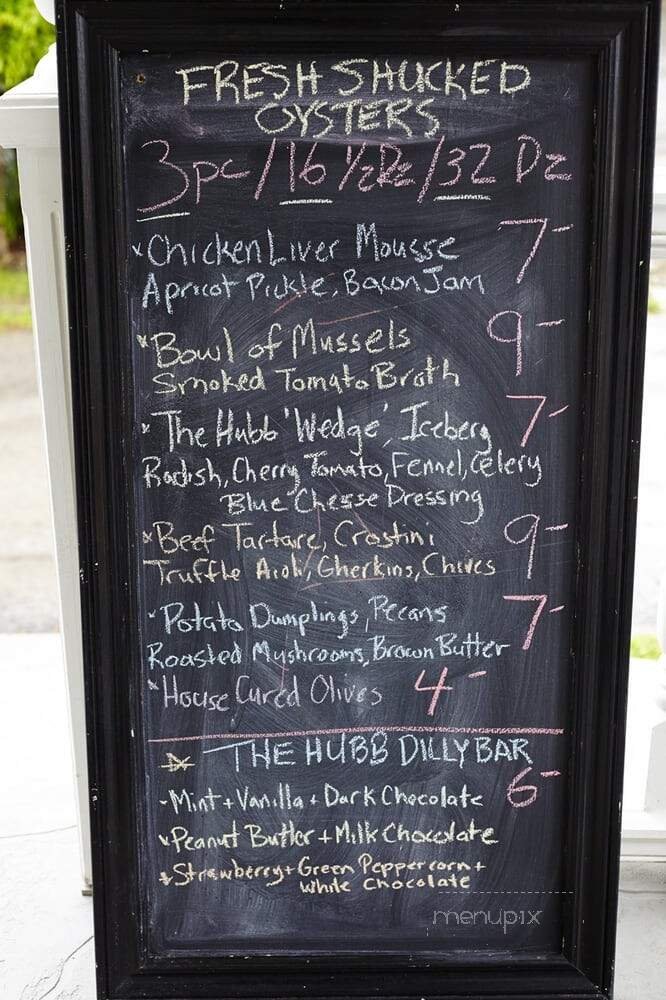 FRESH SHUCKED
OYSTERS
3pc / 16 1/2Dz / 32 Dz
×Chicken Liver Mousse 7-
Apricot Pickle, Bacon Jam
×Bowl of Mussels 9-
Smoked Tomato Broth
×The Hubb 'Wedge', Iceberg 7-
Radish, Cherry Tomato, Fennel, Celery
Blue Cheese Dressing
×Beef Tartare, Crostini 9-
Truffle Aioli, Gherkins, Chives
×Potato Dumplings, Pecans 7-
Roasted Mushrooms, Brown Butter
×House Cured Olives 4-
THE HUBB DILLY BAR
-Mint + Vanilla + Dark Chocolate 6-
×Peanut Butter + Milk Chocolate
×Strawberry + Green Peppercorn +
White Chocolate
menupix